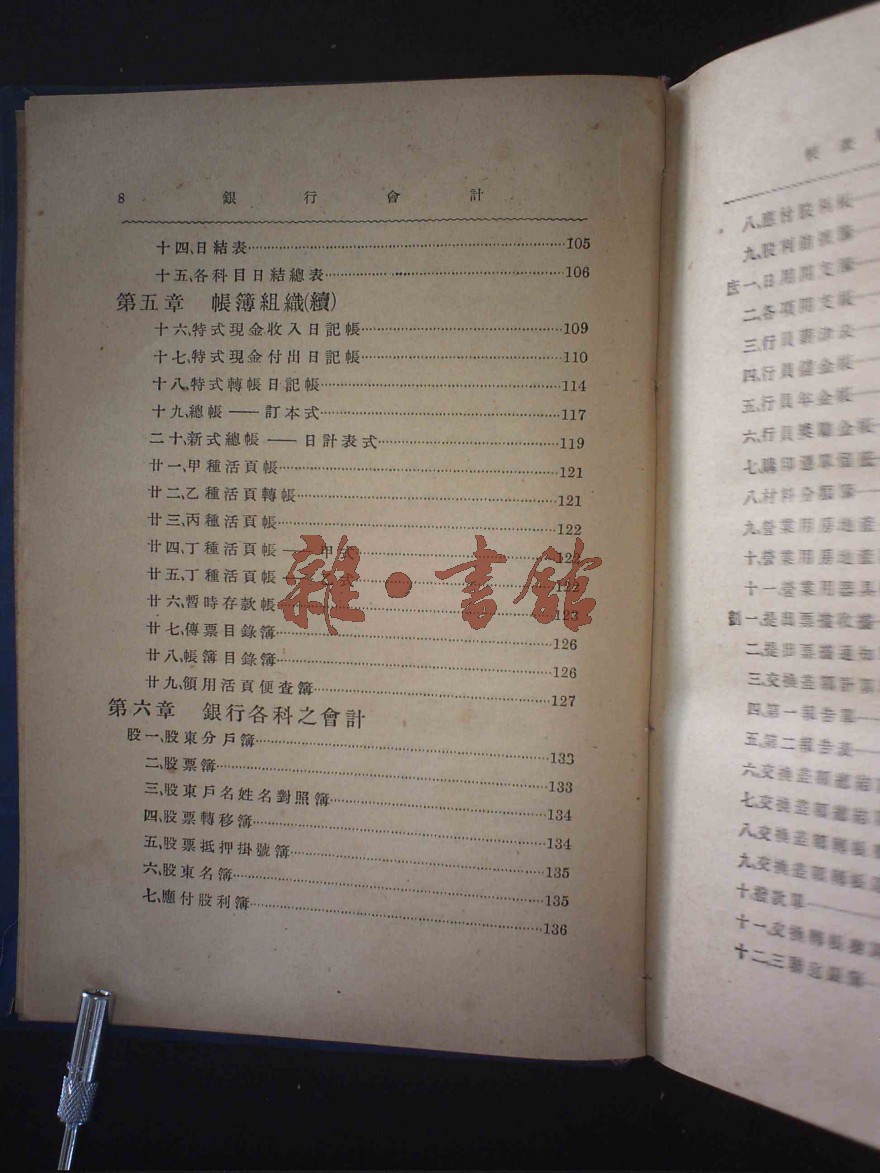 8 銀行會計
十四、日結表 105
十五、各科目日結總表 106
第五章 帳簿組織(續)
十六、特式現金收入日記帳 109
十七、特式現金付出日記帳 110
十八、特式轉帳日記帳 114
十九、總帳——訂本式 117
二十、新式總帳——日計表式 119
廿一、甲種活頁帳 121
廿二、乙種活頁轉帳 121
廿三、丙種活頁帳 122
廿四、丁種活頁帳——甲式 122
廿五、丁種活頁帳——乙式 122
廿六、暫時存款帳 123
廿七、傳票目錄簿 126
廿八、帳簿目錄簿 126
廿九、領用活頁便查簿 127
第六章 銀行各科之會計
股一、股東分戶簿 133
二、股票簿 133
三、股東戶名姓名對照簿 134
四、股票轉移簿 134
五、股票抵押掛號簿 135
六、股東名簿 135
七、應付股利簿 136
雜·書館
一、日用開支簿
二、各項開支帳
四、行員儲金帳
五、行員年金帳
六、行員獎勵金帳
八、材料分類簿
九、營業用房地產
十、營業用房地產
十一、營業用器具
一、提出票據收據
二、提出票據通知
三、交換差額計算
四、第一報告單
五、第二報告表
六、交換差額總結
七、交換差額總結
八、交換差額轉帳
九、交換差額轉帳
十、撥款單
十一、交換轉帳